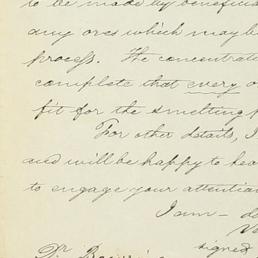 to be made by beneficia
any ores which may be
process. The concentrat
complete that every o
fit for the smelting p
For other details, I
and will be happy to hea
to engage your attention
I am — d
signed
Dr.